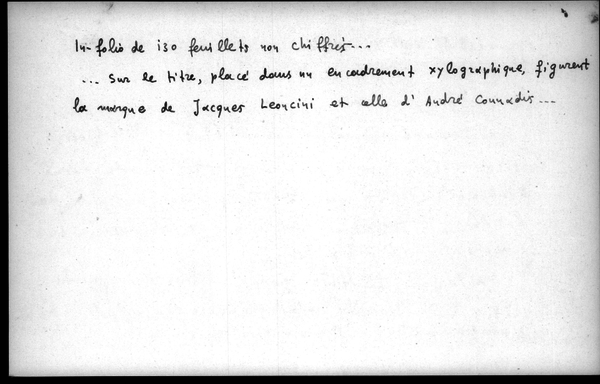 In-folio de 130 feuillets non chiffrés...
... sur le titre, placé dans un encadrement xylographique, figurent
la marque de Jacques Leoncini et celle d'André Counadis...